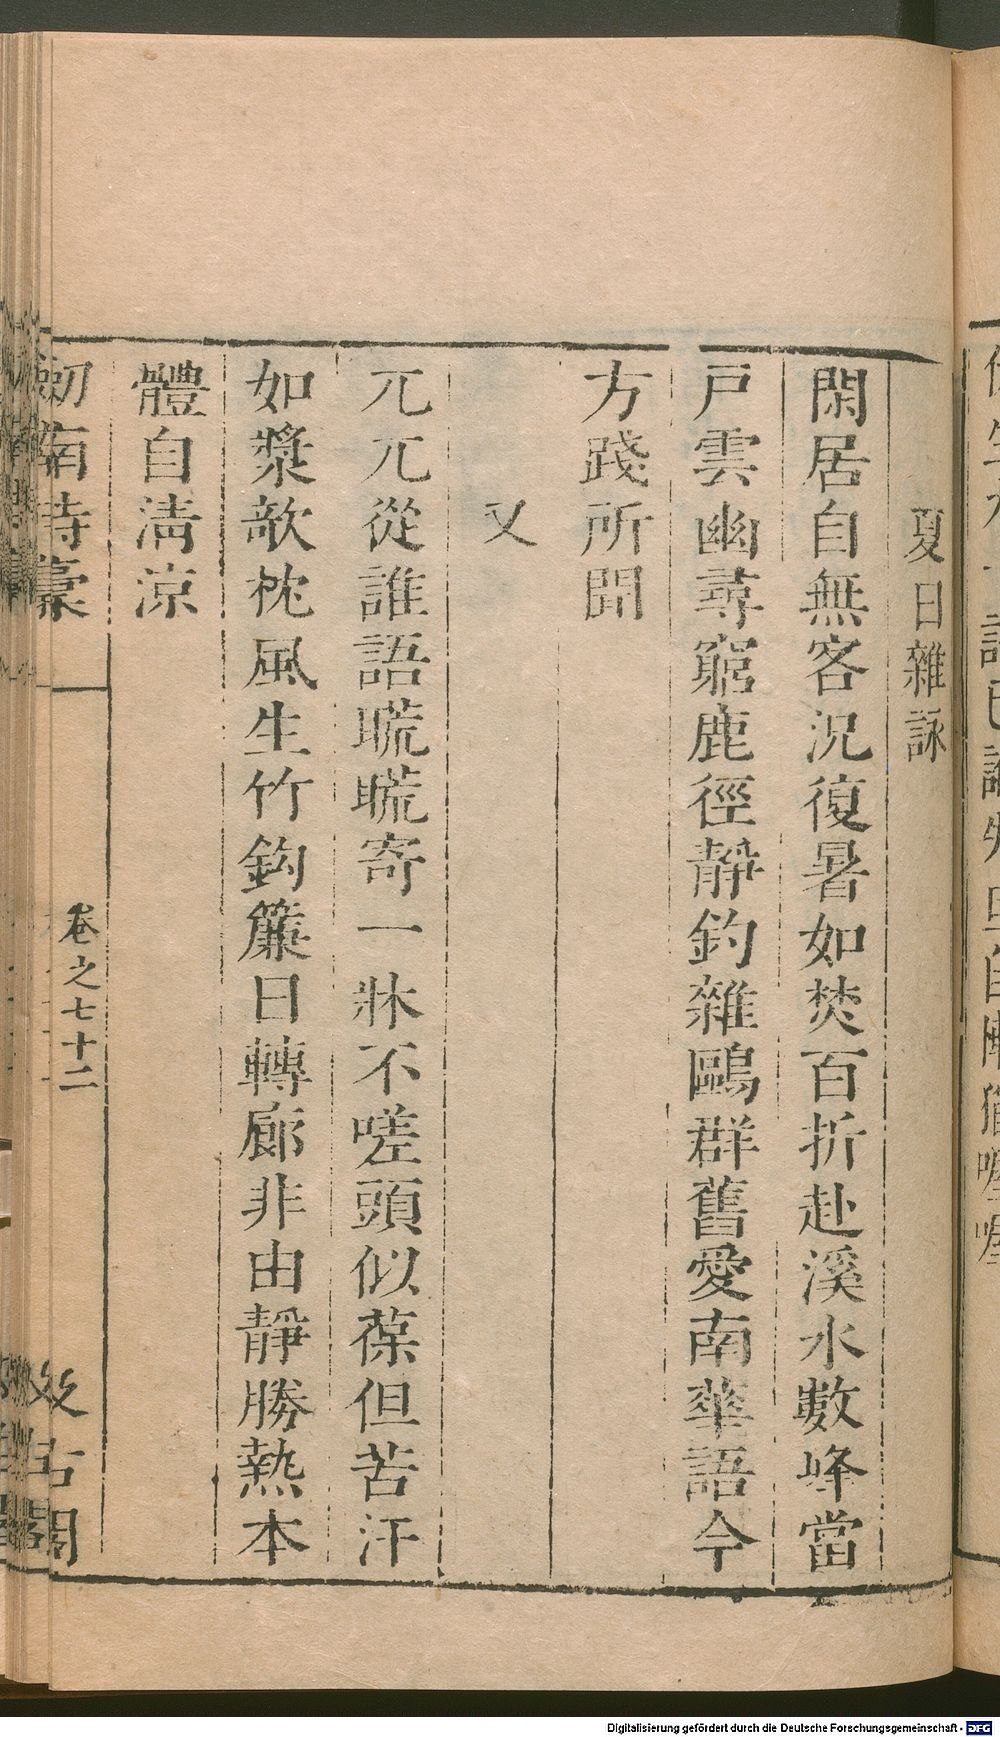 夏日雜詠
閑居自無客況復暑如焚百折赴溪水數峰當
戸雲幽尋窮鹿徑靜釣雜鷗群舊愛南華語今
方踐所聞
又
兀兀從誰語䀮䀮寄一牀不嗟頭似葆但苦汗
如漿欹枕風生竹鈎簾日轉廊非由靜勝熱本
體自淸涼
劎南詩稾
卷之七十二
汲古閣
Digitalisierung gefördert durch die Deutsche Forschungsgemeinschaft - DFG